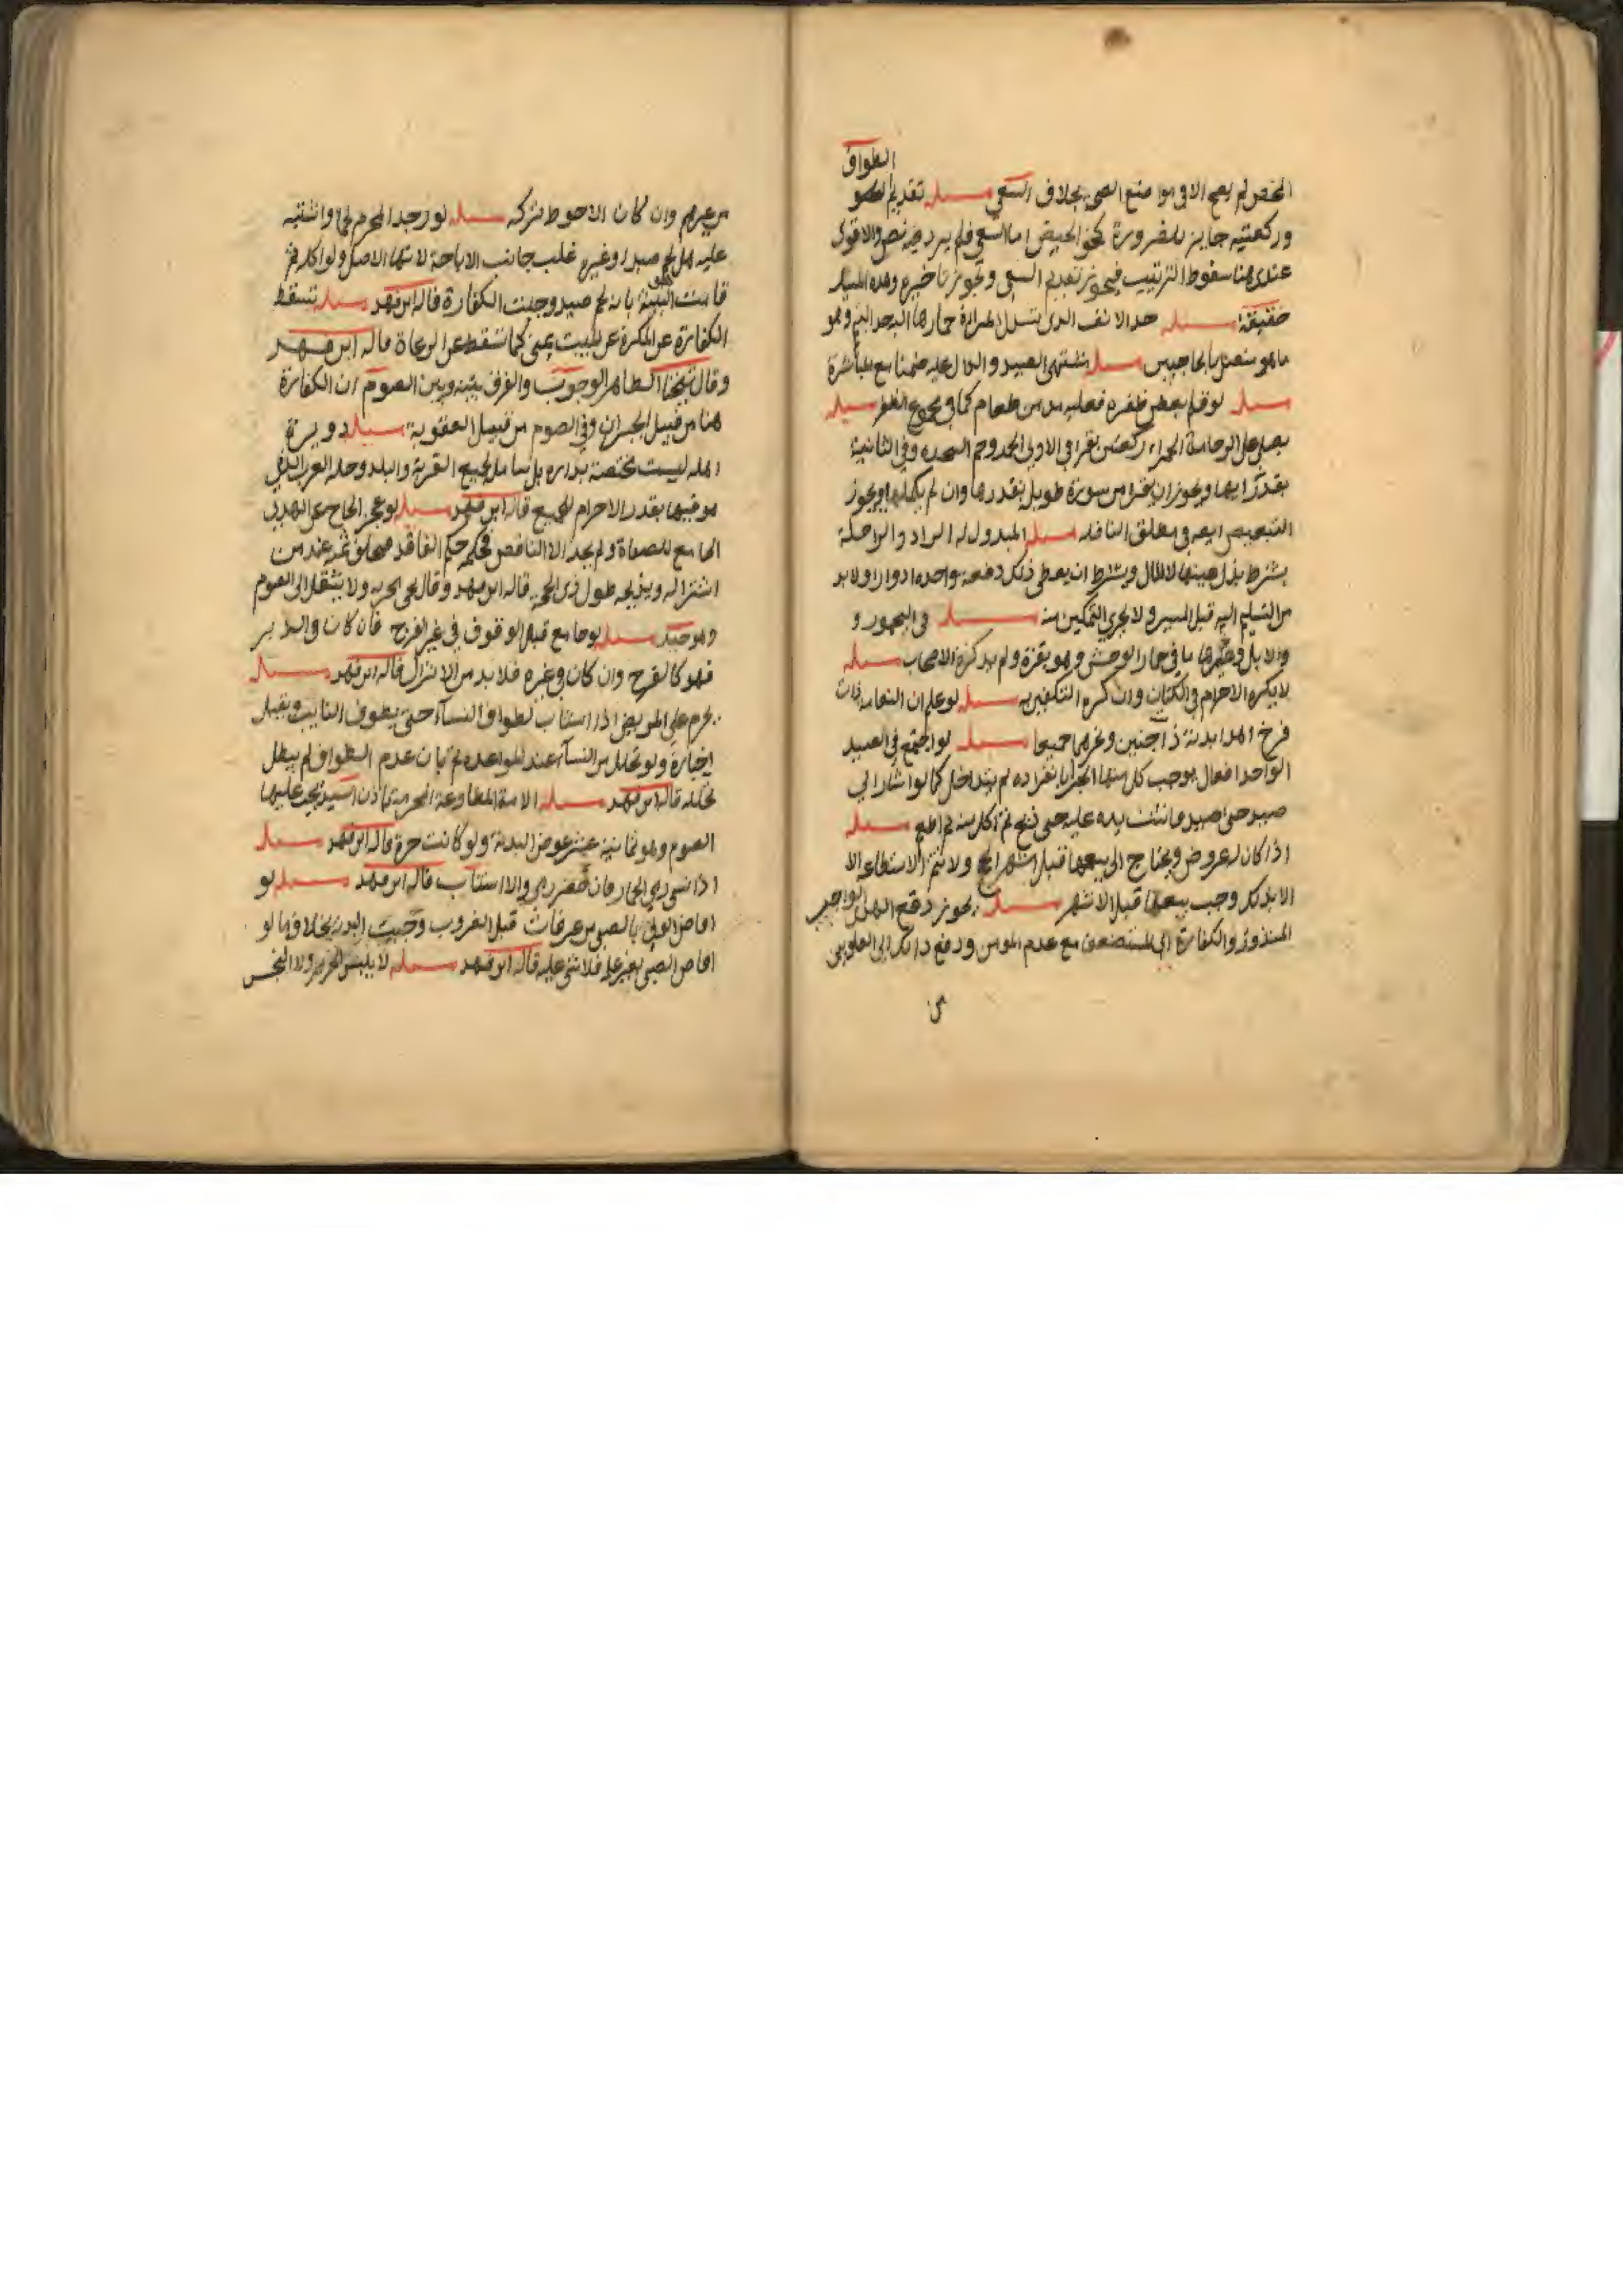 الطواف
المخصر لم يصح الا في مواضع الصحي بخلاف السعي مسئله تقديم
وركعتيه جايز للضرورة كخوف الحيض اما السعي فلم يرد فيه نص والاقوى
عندي هنا سقوط الترتيب فيجوز تقديم السعي ويجوز تاخيره وهذه المسئلة
حقيقة مسئله حد الانف الذي
ما هو متصل بالحاجبين مسئله مع المباشرة
مسئله لو قلم بعض ظفره فعليه مد من طعام كما في مجموع الظفر مسئله
يصلي على الرخامة الحمراء ركعتين يقرا في الاولى الحمد وحم السجدة وفي الثانية
بقدر ايها ويجوز ان يقرا من سورة طويلة بقدرها وان لم يكملها ويجوز
التبعيض ايضا في مطلق النافلة مسئله المبذول له الزاد والراحلة
يشترط بذل عينها لا المال ويشترط ان يعطى ذلك دفعة واحدة ولابد
من التسليم اليه قبل المسير ولا يجزي التمكين منه مسئله في اليحمور و
والابل وغيرها ما في حمار الوحش وهو بقرة ولم يذكره الاصحاب مسئله
لا يكره الاحرام في الكتان وان كره التكفين به مسئله لو علم ان النعامة ذات
فرخ اهدا بدنة ذا جنين ونحرهما جميعا مسئله لو اجتمع في الصيد
الواحد افعال يوجب كل منها الجزا بانفراده لم يتداخل كما لو اشار الى
صيد حتى اصيد وما نتف يده عليه حتى ذبح ثم اكل منه مسئله
اذا كان له عروض ويحتاج الى بيعها قبل اشهر الحج ولا تتم الاستطاعة الا
الا بذلك وجب بيعها قبل الاشهر مسئله يجوز دفع الهدي الواجب
المنذور والكفارة الى المستضعف مع عدم المومن ودفع ذلك الى العلويين
من
من غيرهم وان كان الاحوط تركه مسئله لو وجد المحرم لحما واشتبه
عليه هل لحم صيد او غيره غلب جانب الاباحة لانها الاصل ولو اكله ثم
قامت البينة بانه لحم صيد وجبت الكفارة قاله ابن فهد مسئله تسقط
الكفارة عن المكره عن المبيت بمنى كما تسقط عن الرعاة قاله ابن فهد
وقال شيخنا الظاهر الوجوب والفرق بينه وبين الصوم ان الكفارة
هنا من قبيل الجبران وفي الصوم من قبيل العقوبة مسئله دويرة
اهله ليست مختصة بداره بل شامل لجميع القرية والبلد وحلة العرب الذي
هو فيها بقدر الاحرام للجميع قاله ابن فهد مسئله لو عجز الحاج عن الهدي
الجامع للصفات ولم يجد الا الناقص فحكمه حكم الفاقد فيخلف ثمنه عند من
اشترا له ويذبحه طول ذي الحجة قاله ابن فهد وقال يجزيه ولا ينتقل الى الصوم
وهو جيد مسئله لو جامع قبل الوقوف في غير الفرج فان كان في الدبر
فهو كالفرج وان كان في غيره فلا بد من الانزال قاله ابن فهد مسئله
يحرم على المريض اذا استناب لطواف النسآء حتى يطوف النايب ويقبل
اخباره ولو تحلل من النسآء عند المواعدة ثم بان عدم الطواف لم يبطل
تحلله قاله ابن فهد مسئله الامة المطاوعة المحرمة باذن السيد يجب عليها
الصوم وهو ثمانية عشر عوض البدنة ولو كانت حرة قاله ابن فهد مسئله
اذا نسي رمي الجمار فان حضر رمى والا استناب قاله ابن فهد مسئله لو
افاض الولي بالصبي من عرفات قبل الغروب وجبت البدنة بخلاف ما لو
افاض الصبي بغير علمه فلا شي عليه قاله ابن فهد مسئله لا يلبس الحرير ولا النجس